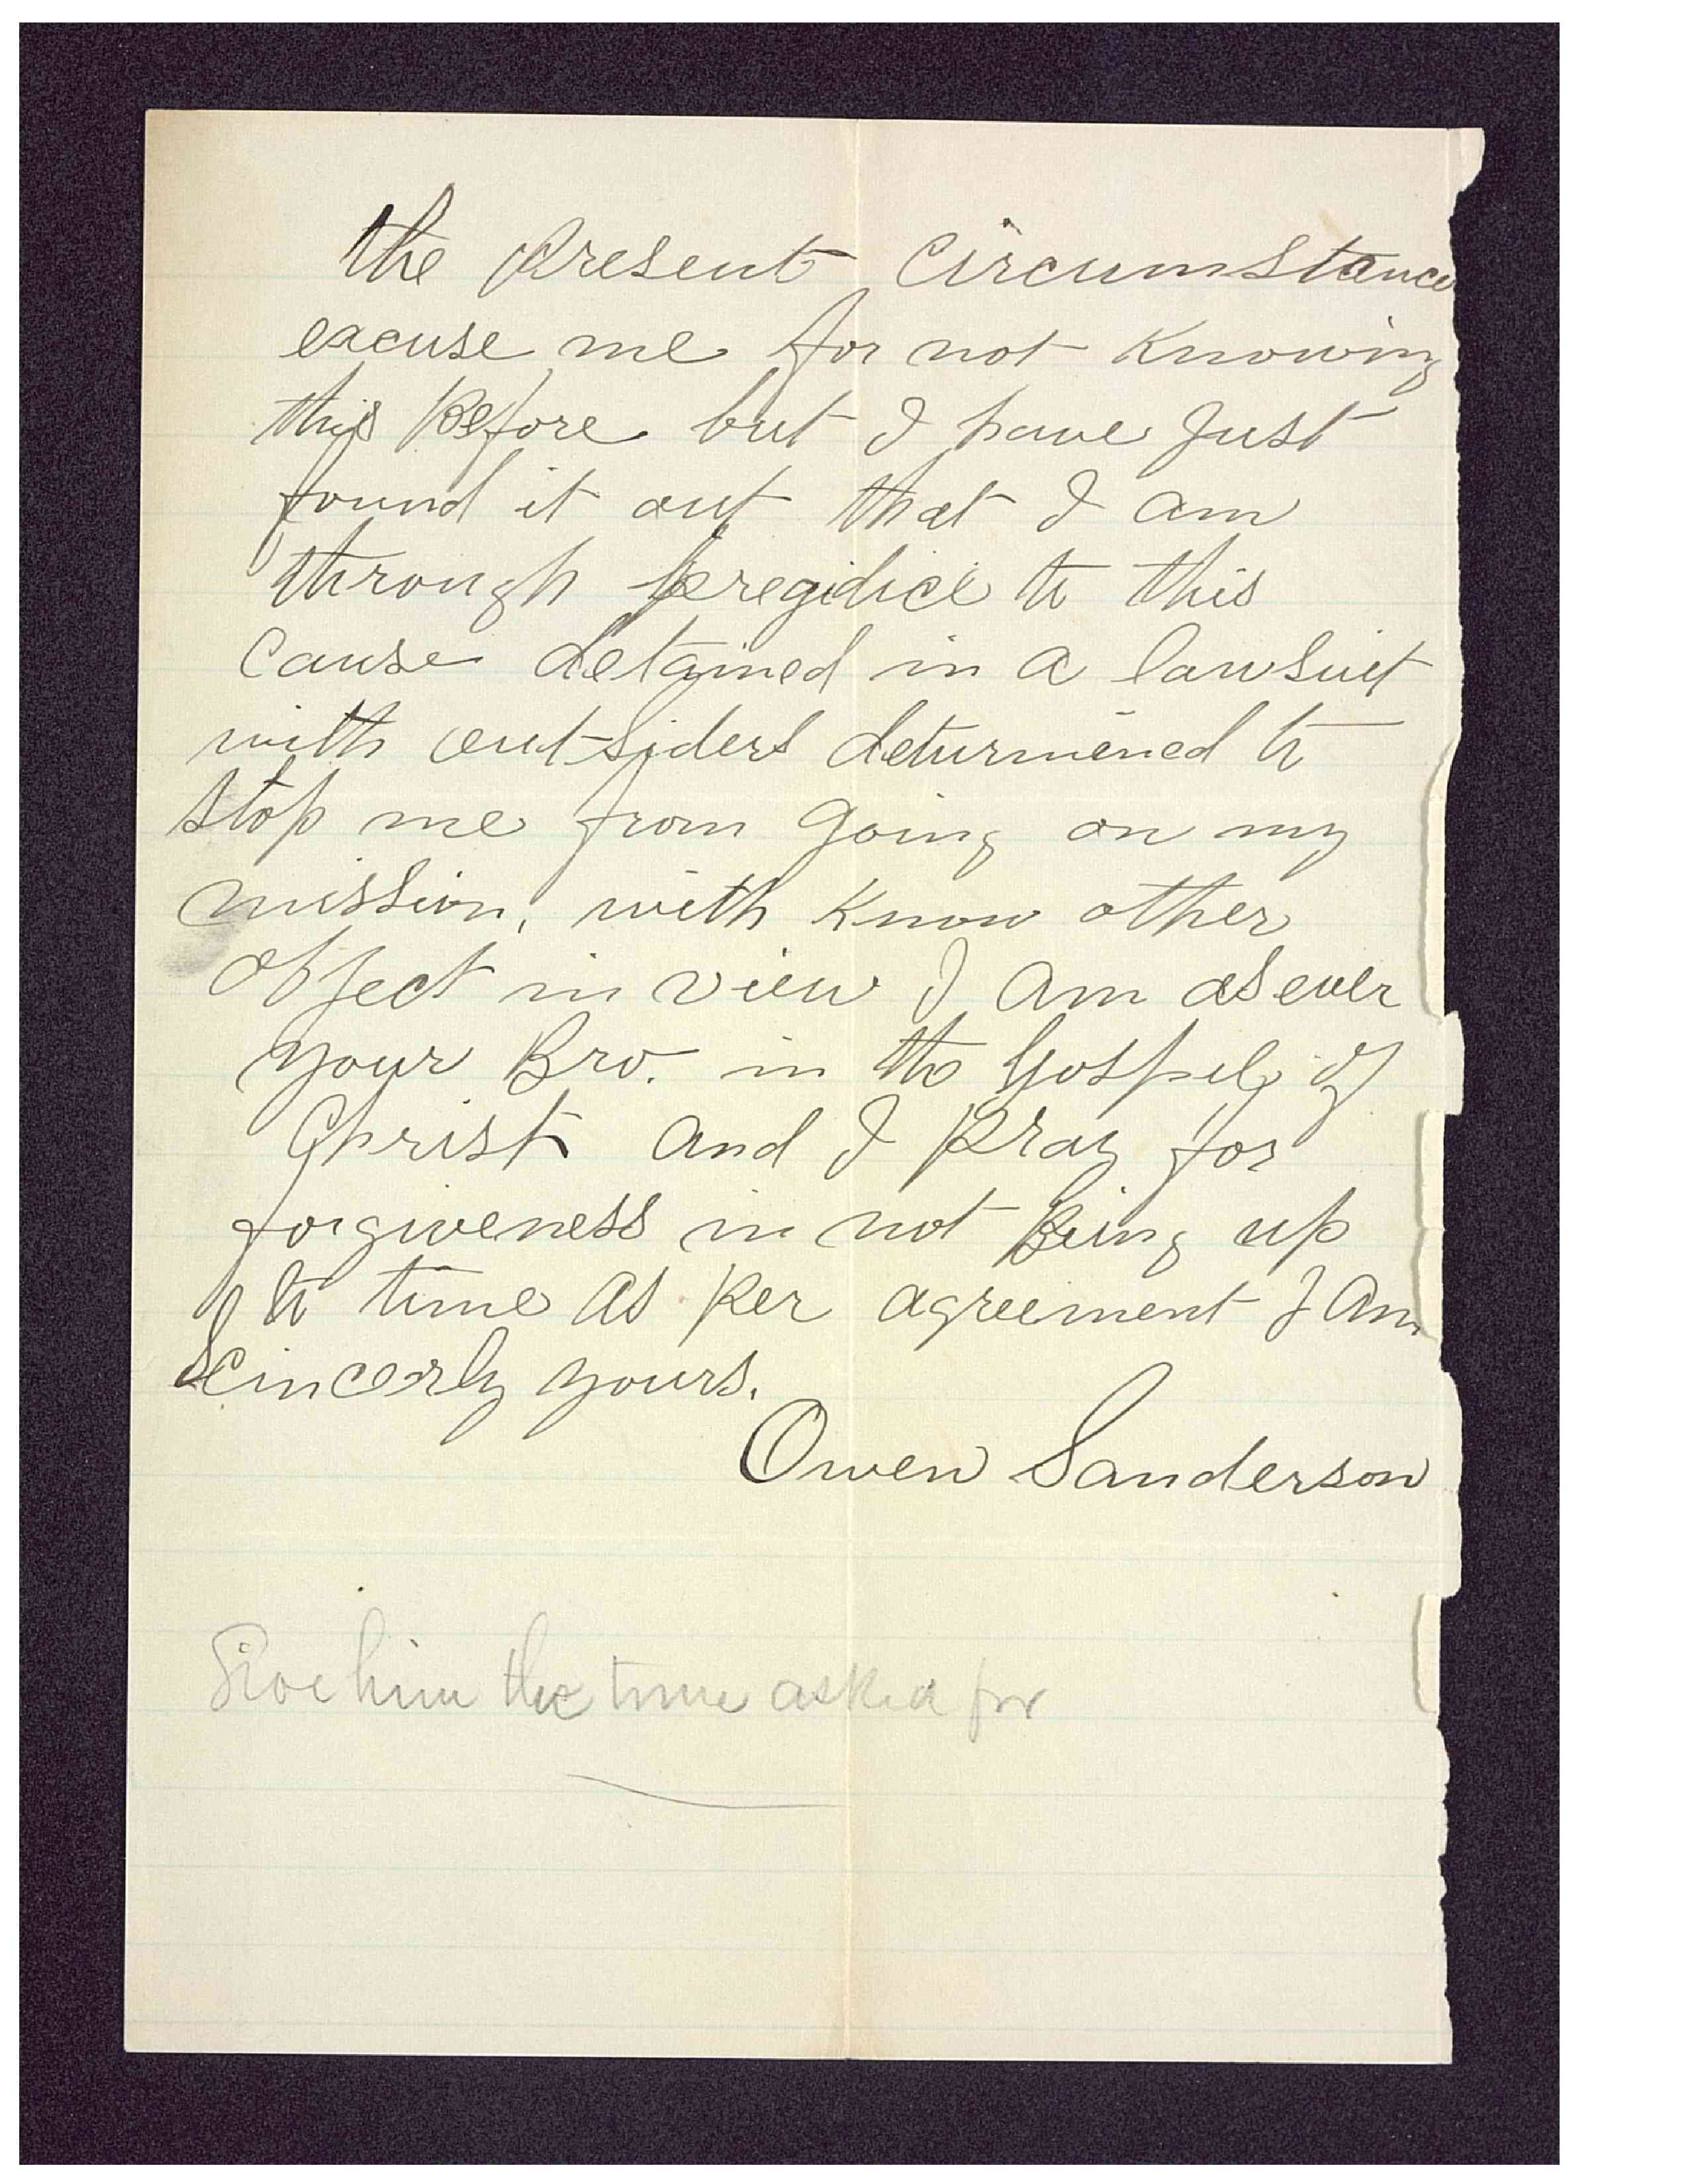 the Present Circumstance
excuse me for not Knowing
this Before but I have Just
found it out that I am
through pregidice to this
Cause detained in a lawsuit
with outsiders deturmened to
stop me from going on my
mission, with Know other
object in view I am as ever
your Bro. in the Gospel of
Christ and I Pray for
forgiveness in not Being up
to time as Per agreement I am
Sincerly yours.
Owen Sanderson
Give him the time asked for